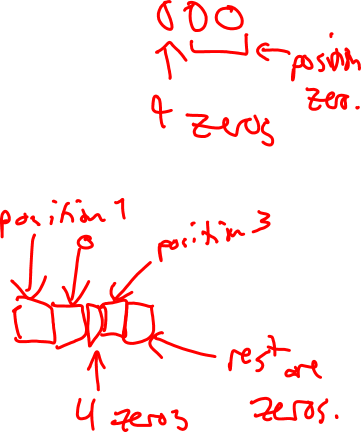 000
position
zero.
4 zeros
position 1
0
position 3
rest are
zeros.
4 zeros